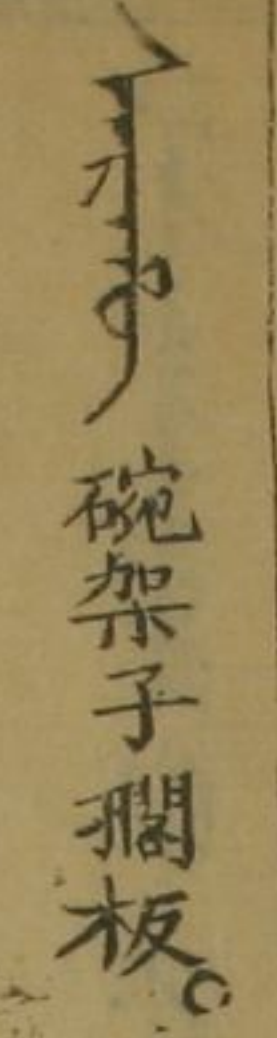 ᠰᠠᡵᡥᡡ 碗架子擱板。